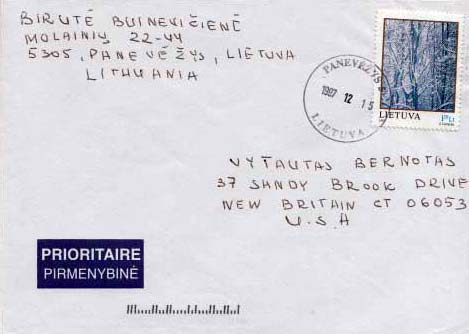 BIRUTĖ BUINEVIČIENĖ
MOLAINIŲ 22-44
5305, PANEVĖŽYS, LIETUVA
LITHUANIA
PANEVĖŽYS
1997 12 15
LIETUVA
LIETUVA
VYTAUTAS BERNOTAS
37 SANDY BROOK DRIVE
NEW BRITAIN CT 06053
U.S.A
PRIORITAIRE
PIRMENYBINĖ